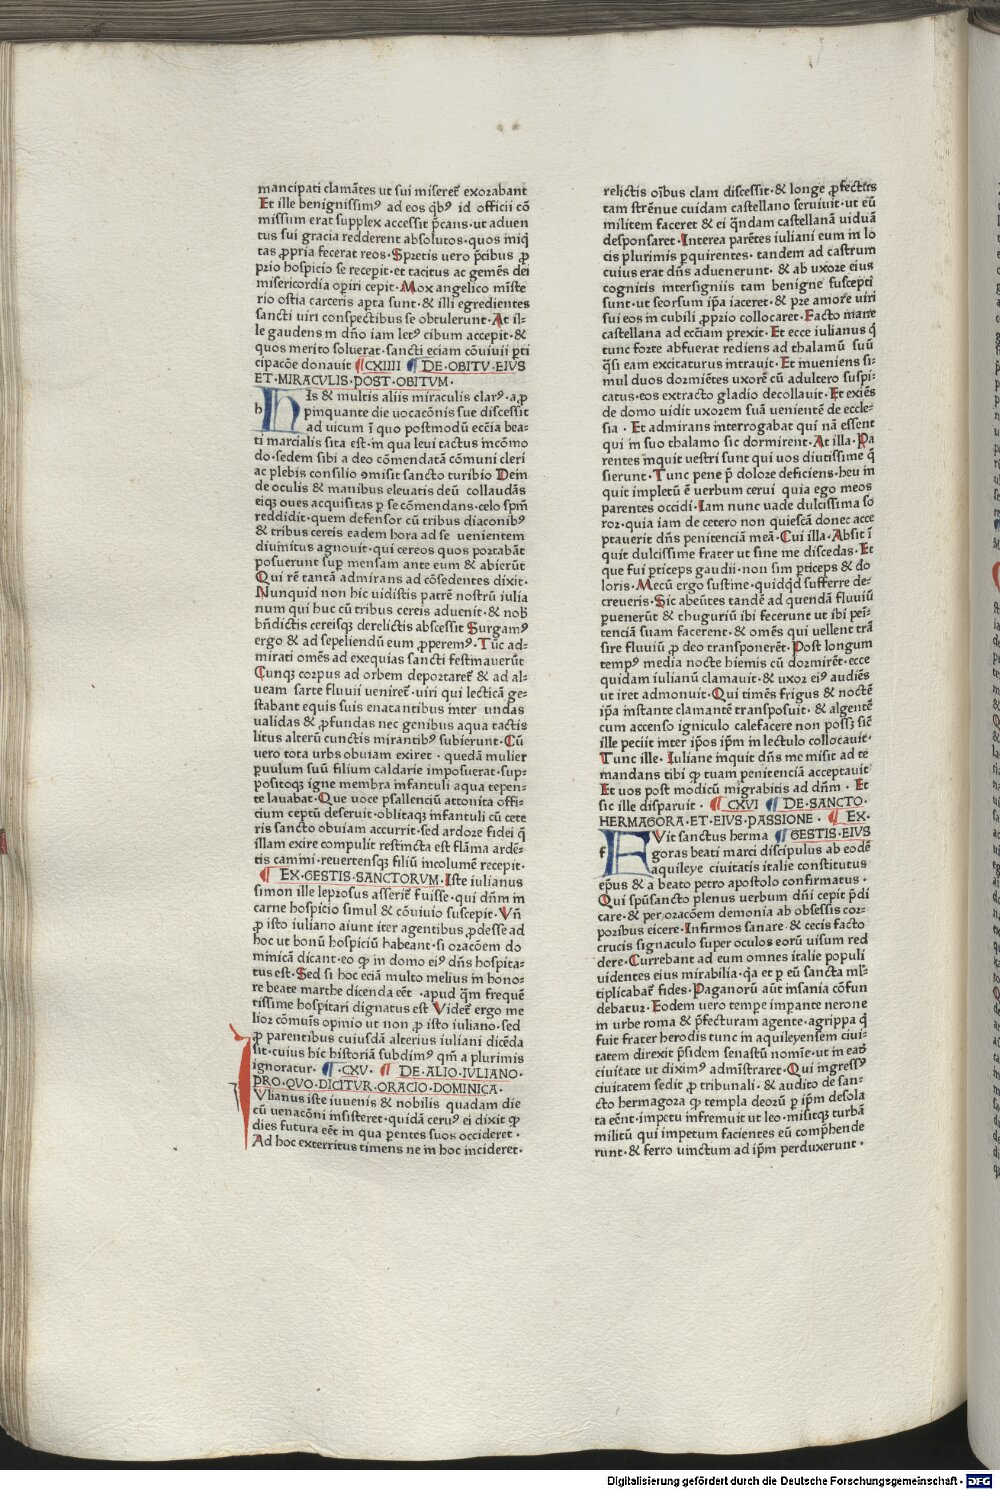 mancipati clamãtes ut sui misereret̃ exorabant
Et ille benignissimꝰ ad eos q̃bꝰ id officii cõ
missum erat supplex accessit p̃cans·ut aduen
tus sui gracia redderent absolutos·quos iniq̃
tas ꝓpria fecerat reos·Spretis uero p̃cibus ꝓ
prio hospicio se recepit·et tacitus ac gemẽs dei
misericordia oꝑiri cepit·Mox angelico miñste
rio ostia carceris apta sunt·& illi egredientes
sancti uiri conspectibus se obtulerunt·At il⸗
le gaudens in dño iam letꝰ cibum accepit·&
quos merito soluerat·sancti eciam cõuiuii ꝑti
cipacõe donauit ¶CXIIII ¶ DE·OBITV·EIVS
ET·MIRACVLIS·POST·OBITVM·
HIs & multis aliis miraculis clarꝰ·a ꝓ
pinquante die uocacõnis sue discessit
ad uicum ĩ quo postmodũ ecc̃ia bea⸗
ti marcialis sita est·in qua leui tactus incõmo
do·sedem sibi a deo cõmendatã cõmuni cleri
ac plebis consilio ꝯmisit sancto turibio Dein
de oculis & manibus eleuatis deũ collaudãs
eiqꝫ oues acquisitas ꝑ se cõmendans·celo sp̃m
reddidit·quem defensor cũ tribus diaconibꝰ
& tribus cereis eadem hora ad se uenientem
diuinitus agnouit·qui cereos quos portabãt
posuerunt sup mensam ante eum & abierũt
Qui rẽ tantã admirans ad cõsedentes dixit·
Nunquid non hic uidistis patrẽ nostrũ iulia
num qui huc cũ tribus cereis aduenit·& nob̃
bñdictis cereisqꝫ derelictis abscessit Surgamꝰ
ergo & ad sepeliendũ eum ꝓperemꝰ·Tũc ad⸗
mirati omẽs ad exequias sancti festinauerũt
Cunqꝫ corpus ad orbem deportaret̃ & ad al⸗
ueam sarte fluuii ueniret̃·uiri qui lecticã ge⸗
stabant equis suis enatantibus inter undas
ualidas & ꝓfundas nec genibus aqua tactis
litus alterũ cunctis mirantibꝰ subierunt·Cũ
uero tota urbs obuiam exiret · quedã mulier
puulum suũ filium caldarie imposuerat·sup⸗
positoqꝫ igne membra infantuli aqua tepen⸗
te lauabat·Que uoce psallenciũ attonita offi⸗
cium ceptũ deseruit·oblitaqꝫ infantuli cũ cete
ris sancto obuiam accurrit·sed ardore fidei q̃
illam exire compulit restincta est flãma ardẽ⸗
tis camini·reuertensqꝫ filiũ incolumẽ recepit·
¶ EX·GESTIS·SANCTORVM·Iste iulianus
simon ille leprosus asserit̃ fuisse·qui dñm in
carne hospicio simul & cõuiuio suscepit·Vñ
ꝓ isto iuliano aiunt iter agentibus ꝓdesse ad
hoc ut bonũ hospiciũ habeant·si oracõem do
minicã dicant·eo ꝙ in domo eiꝰ dñs hospita⸗
tus est·Sed si hoc eciã multo melius in hono⸗
re beate marthe dicenda eẽt ·apud q̃m frequẽ
tissime hospitari dignatus est Videt̃ ergo me
lior cõmuñis opinio ut non ꝓ isto iuliano·sed
ꝓ parentibus cuiusdã alterius iuliani dicẽda
sit·cuius hic historiã subdimꝰ qm̃ a plurimis
ignoratur· ¶·CXV· ¶ DE·ALIO·IVLIANO·
PRO·QVO·DICITVR·ORACIO·DOMINICA·
IVlianus iste iuuenis & nobilis quadam die
cũ uenacõni insisteret·quidã ceruꝰ ei dixit ꝙ
dies futura eẽt in qua ꝑentes suos occideret ·
Ad hoc exterritus timens ne in hoc incideret·
relictis oĩbus clam discessit·& longe ꝓfectus
tam strẽnue cuidam castellano seruiuit·ut eũ
militem faceret & ei q̃ndam castellanã uiduã
desponsaret·Interea parẽtes iuliani eum in lo
cis plurimis ꝑquirentes· tandem ad castrum
cuius erat dñs aduenerunt· & ab uxore eius
cognitis intersigniis tam benigne suscepti
sunt·ut seorsum ip̃a iaceret·& pre amore uiri
sui eos in cubili ꝓprio collocaret·Facto mane
castellana ad ecc̃iam ꝑrexit·Et ecce iulianus q̃
tunc forte abfuerat rediens ad thalamũ suũ
q̃si eam excitaturus intrauit·Et inueniens si⸗
mul duos dormiẽtes uxorẽ cũ adultero suspi⸗
catus·eos extracto gladio decollauit·Et exiẽs
de domo uidit uxorem suã uenientẽ de eccle⸗
sia · Et admirans interrogabat qui nã essent
qui in suo thalamo sic dormirent·At illa·Pa
rentes inquit uestri sunt qui uos diutissime q̃
sierunt·Tunc pene p̃ dolore deficiens·heu in
quit impletũ ẽ uerbum cerui quia ego meos
parentes occidi·Iam nunc uade dulcissima so
ror·quia iam de cetero non quiescã donec acce
ptauerit dñs penitenciã meã·Cui illa·Absit ĩ
quit dulcissime frater ut sine me discedas·Et
que fui ꝑticeps gaudii·non sim ꝑticeps & do
loris·Mecũ ergo sustine·quidqd̃ sufferre de⸗
creueris·Sic abeũtes tandẽ ad quendã fluuiũ
puenerũt & thuguriũ ibi fecerunt ut ibi peñi⸗
tenciã suam facerent·& omẽs qui uellent trã
sire fluuiũ ꝓ deo transponerẽt·Post longum
tempꝰ media nocte hiemis cũ dormirẽt·ecce
quidam iulianũ clamauit·& uxor eiꝰ audiẽs
ut iret admonuit·Qui timẽs frigus & noctẽ
ip̃a instante clamantẽ transposuit· & algentẽ
cum accenso igniculo calefacere non possꝫ sic̃
ille peciit inter ip̃os ip̃m in lectulo collocauit·
Tunc ille· Iuliane inquit dñs me misit ad te
mandans tibi ꝙ tuam penitenciã acceptauit
Et uos post modicũ migrabitis ad dñm · Et
sic ille disparuit · ¶ CXVI ¶ DE·SANCTO·
HERMAGORA·ET·EIVS·PASSIONE · ¶ EX·
FVit sanctus herma ¶ GESTIS·EIVS
goras beati marci discipulus ab eodẽ
aquileye ciuitatis italie constitutus
ep̃us & a beato petro apostolo confirmatus ·
Qui spũsancto plenus uerbum dñi cepit p̃di
care·& per oracõem demonia ab obsessis cor⸗
poribus eicere·Infirmos sanare·& cecis facto
crucis signaculo super oculos eorũ uisum red
dere·Currebant ad eum omnes italie populi
uidentes eius mirabilia·qa et ꝑ eũ sancta ml̃⸗
tiplicabat̃ fides·Paganorũ aũt insania cõfun
debatur·Eodem uero tempe impante nerone
in urbe roma & p̃fecturam agente·agrippa q̃
fuit frater herodis tunc in aquileyensem ciui⸗
tatem direxit p̃sidem senastũ nomĩe·ut in eaď
ciuitate ut diximꝰ admĩstraret·Qui ingressꝰ
ciuitatem sedit ꝓ tribunali·& audito de san⸗
cto hermagora ꝙ templa deorũ ꝑ ip̃m desola
ta eẽnt·impetu infremuit ut leo·misitqꝫ turbã
militũ qui impetum facientes eũ comp̃hende
runt·& ferro uinctum ad ip̃m perduxerunt ·
Digitalisierung gefördert durch die Deutsche Forschungsgemeinschaft - DFG